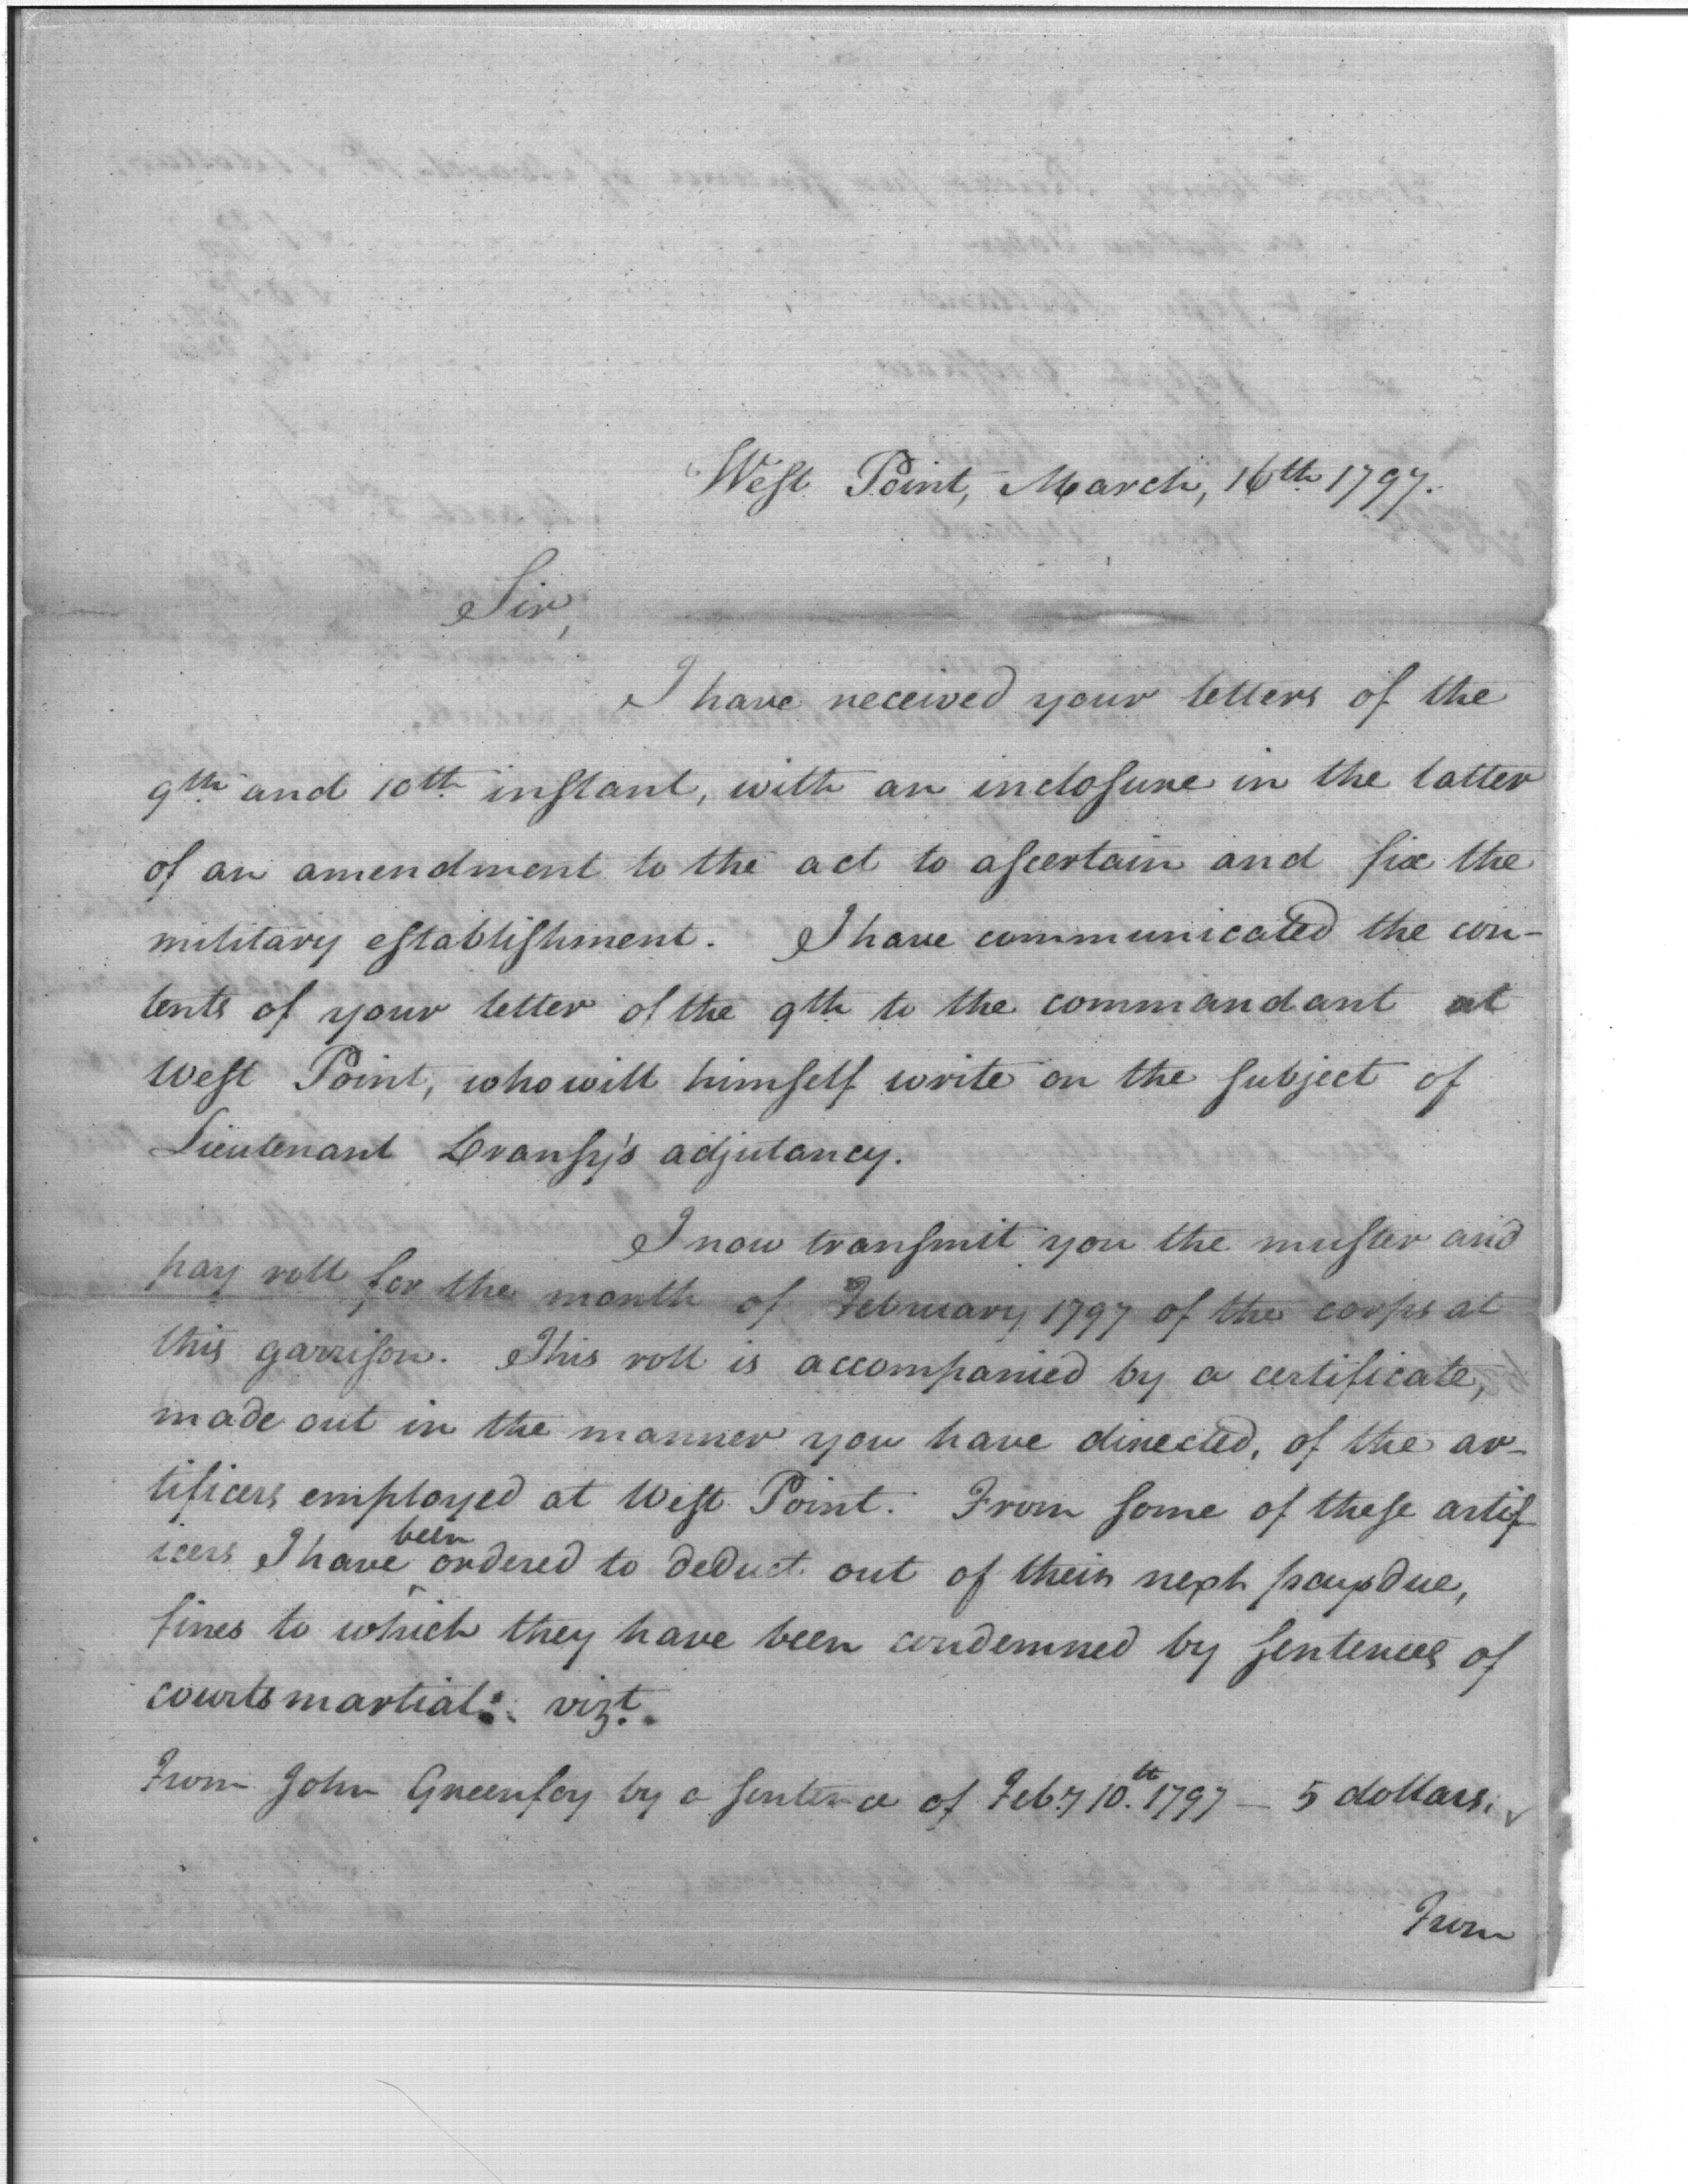 West Point, March, 16th 1797.
Sir,
I have received your letters of the
9th and 10th instant, with an inclosure in the latter
of an amendment to the act to ascertain and fix the
military establishment. I have communicated the con-
tents of your letter of the 9th to the commandant at
West Point, who will himself write on the subject of
Lieutenant adjutancy.
I now transmit you the muster and
pay roll for the month of February 1797 of the corps at
this garrison. This roll is accompanied by a certificate,
made out in the manner you have directed, of the ar-
tificers employed at West Point. From some of these artif-
icers I have been ordered to deduct out of their next pays due,
fines to which they have been condemned by sentences of
courts martial: vizt.
From John by a sentence of Feby 10.th 1797 — 5 dollars.
From